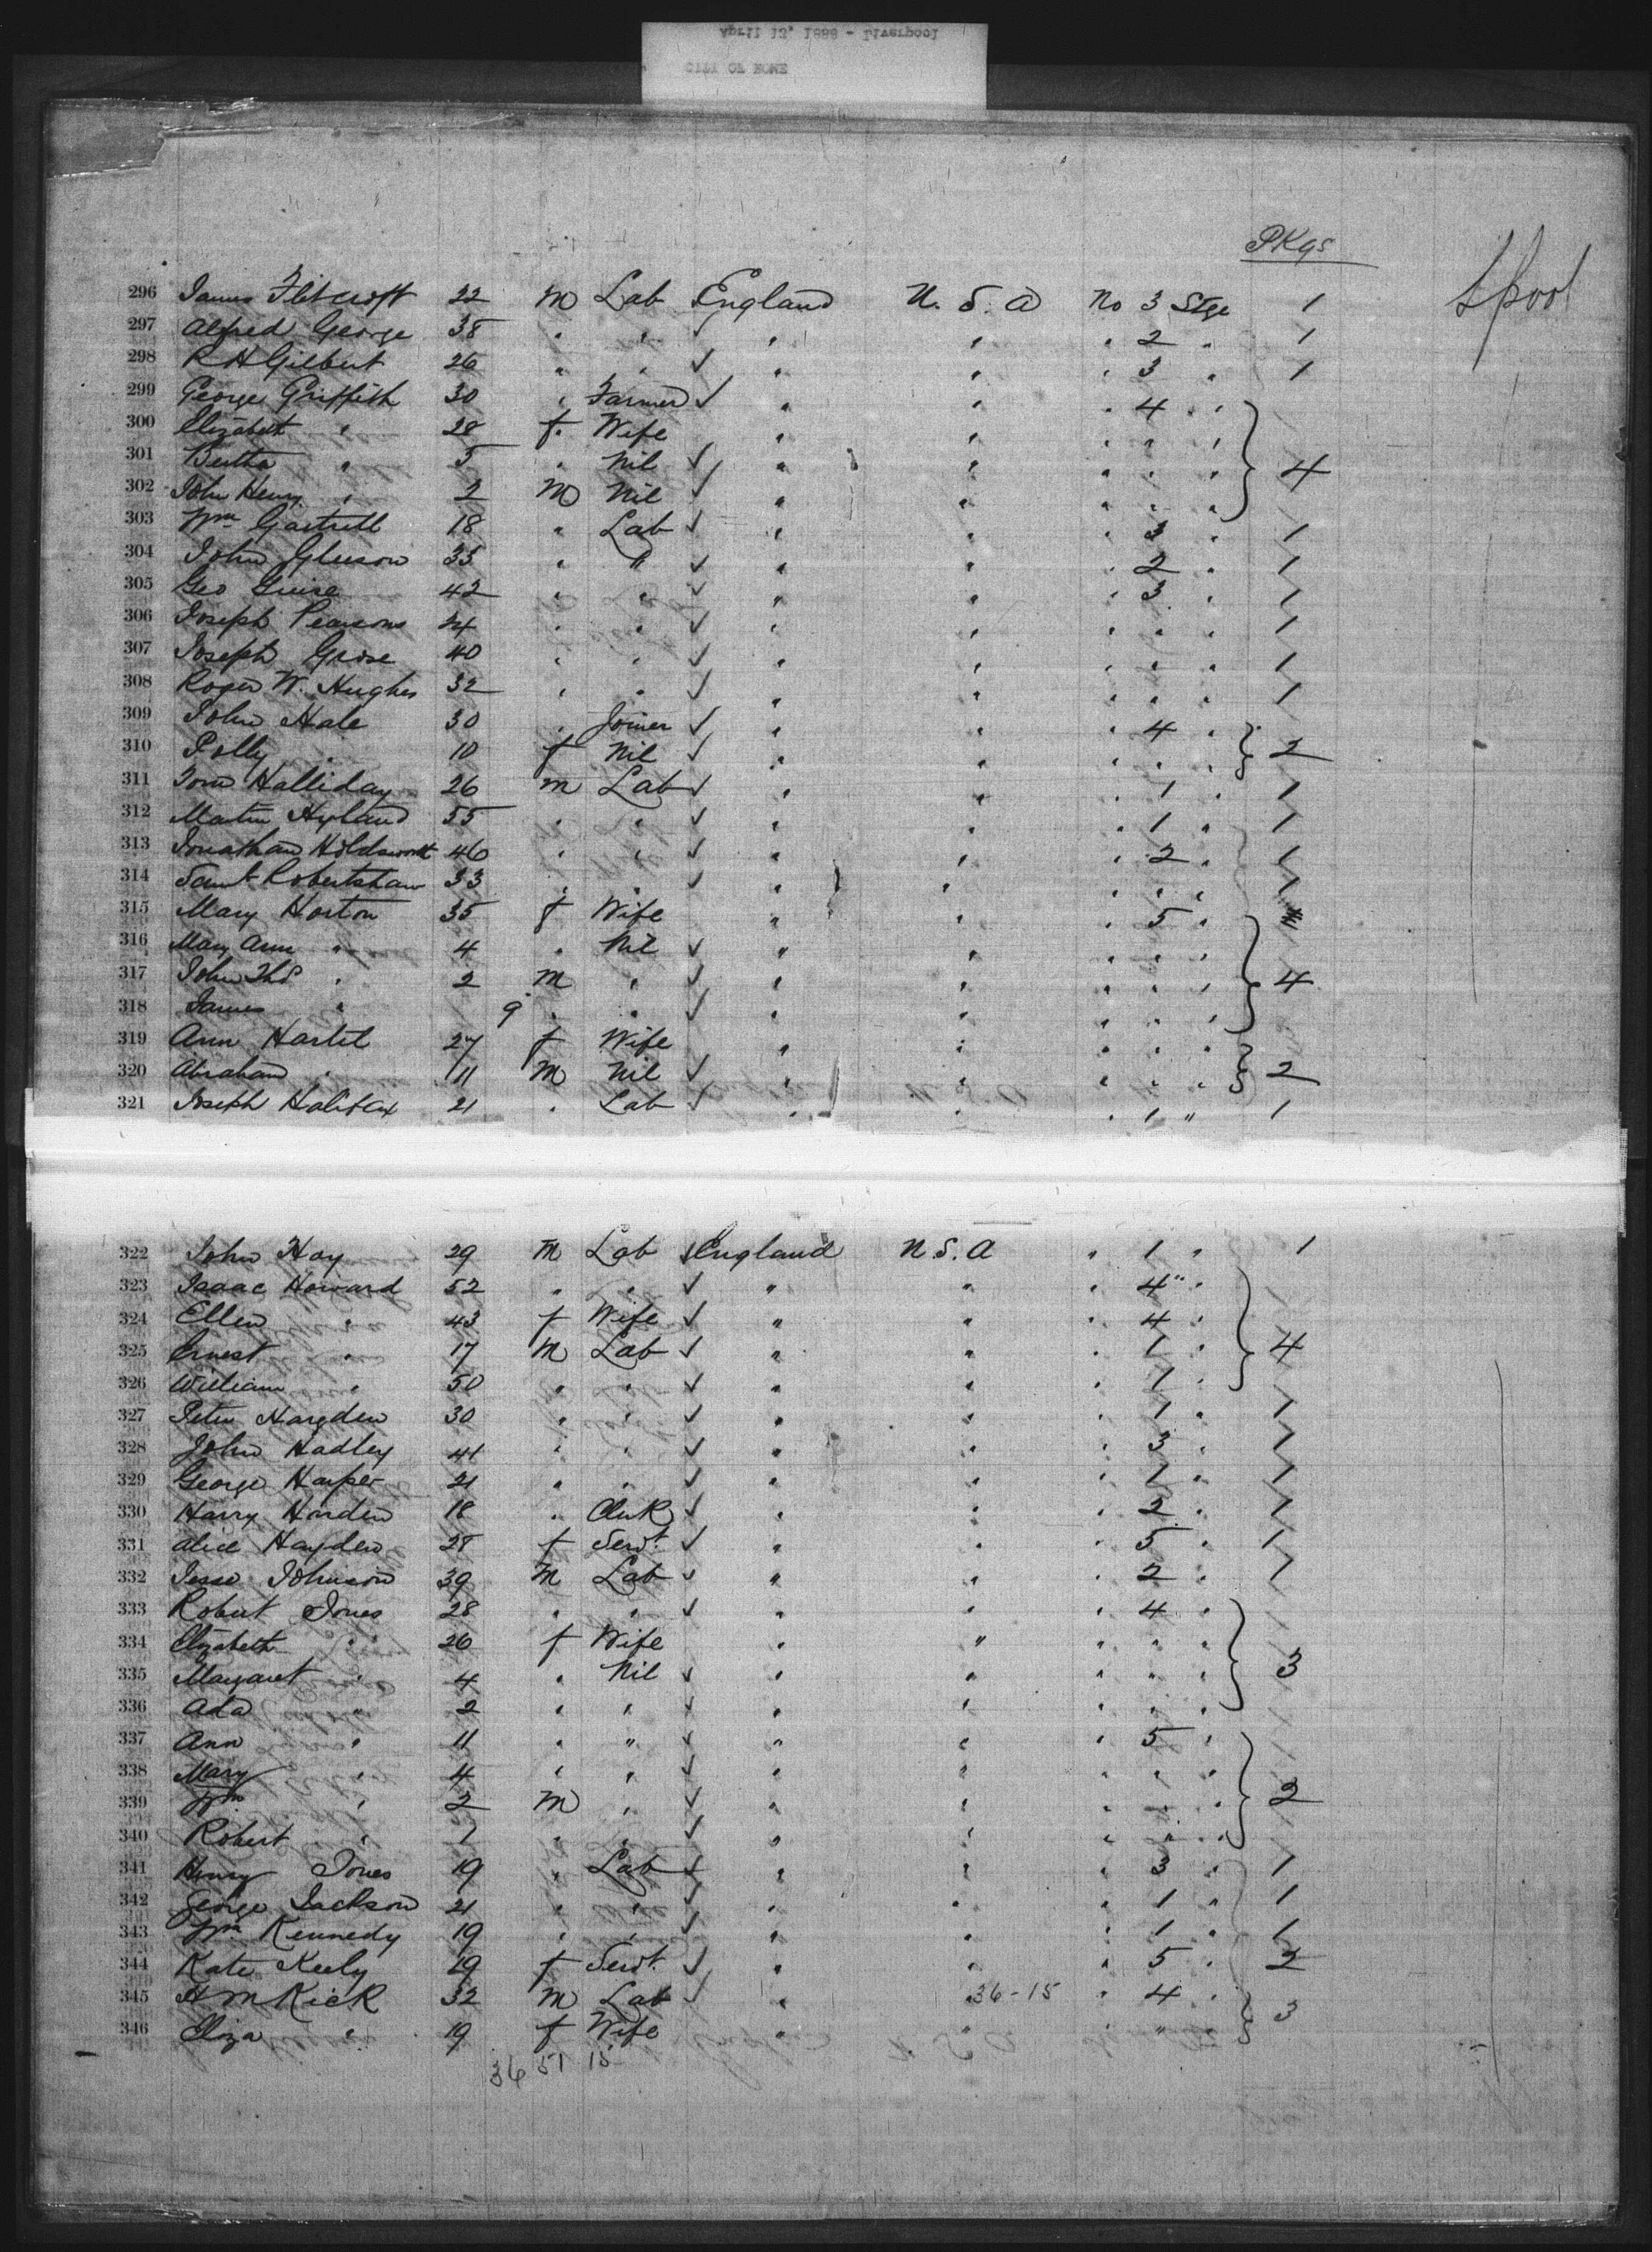 April 13, 1888 - Liverpool
CITY OF ROME
PKgs
L'pool
296 James Flitcroft 22 m Lab England U. S. A No 3 Stge 1
297 Alfred George 38 " " " " " 2 " 1
298 R H Gilbert 26 " " ✓ " " " 3 " 1
299 George Griffith 30 " Farmer ✓ " " " 4 "
300 Elizabeth " 28 f Wife " " " " "
301 Bertha " 5 " Nil ✓ " " " " " 4
302 John Henry " 2 m Nil ✓ " " " " "
303 Wm Gartrell 18 " Lab ✓ " " " 3 " 1
304 John Gleeson 33 " " ✓ " " " 2 " 1
305 Geo Guise 42 " " ✓ " " " 3 " 1
306 Joseph Pearsons 24 " " ✓ " " " " " 1
307 Joseph Grose 40 " " ✓ " " " " " 1
308 Roger W. Hughes 32 " " ✓ " " " " " 1
309 John Hale 30 " Joiner ✓ " " " 4 "
310 Polly " 10 f Nil ✓ " " " " " 2
311 Tom Halliday 26 m Lab ✓ " " " 1 " 1
312 Martin Hyland 55 " " ✓ " " " 1 " 1
313 Jonathan Holdsworth 46 " " ✓ " " " 2 " 1
314 Saml Robertshaw 33 " " ✓ " " " " " 1
315 Mary Horton 35 f Wife " " " 5 "
316 Mary Ann " 4 " Nil ✓ " " " " "
317 John Thos " 2 m " ✓ " " " " " 4
318 James " 9 " " ✓ " " " " "
319 Ann Hartel 27 f Wife " " " " "
320 Abraham " 11 m Nil ✓ " " " " " 2
321 Joseph Halifax 21 " Lab ✓ " " " 1 " 1
322 John Hay 29 m Lab ✓ England U S. A " 1 " 1
323 Isaac Howard 52 " " ✓ " " " 4 "
324 Ellen " 43 f Wife ✓ " " " 4 "
325 Ernest " 17 m Lab ✓ " " " 1 " 4
326 William " 50 " " ✓ " " " 1 "
327 Peter Hargden 30 " " ✓ " " " 1 " 1
328 John Hadley 41 " " ✓ " " " 3 " 1
329 George Harper 21 " " ✓ " " " 1 " 1
330 Harry Harden 18 " Clerk ✓ " " " 2 " 1
331 Alice Hayden 28 f Servt. ✓ " " " 5 " 1
332 Jesse Johnson 39 m Lab ✓ " " " 2 " 1
333 Robert Jones 28 " " ✓ " " " 4 "
334 Elizabeth " 26 f Wife " " " " "
335 Margaret " 4 " Nil ✓ " " " " " 3
336 Ada " 2 " " ✓ " " " " "
337 Ann " 11 " " ✓ " " " 5 "
338 Mary " 4 " " ✓ " " " " "
339 Wm " 2 m " ✓ " " " " " 2
340 Robert " 1 " " ✓ " " " " "
341 Henry Jones 19 " Lab ✓ " " " 3 " 1
342 George Jackson 21 " " ✓ " " " 1 " 1
343 Wm Kennedy 19 " " ✓ " " " 1 " 1
344 Kate Keely 19 f Servt. ✓ " " " 5 " 2
345 H M Kick 32 m Lab ✓ " 36-15 " 4 "
346 Eliza " 19 f Wife " " " " " 3
36 51 15